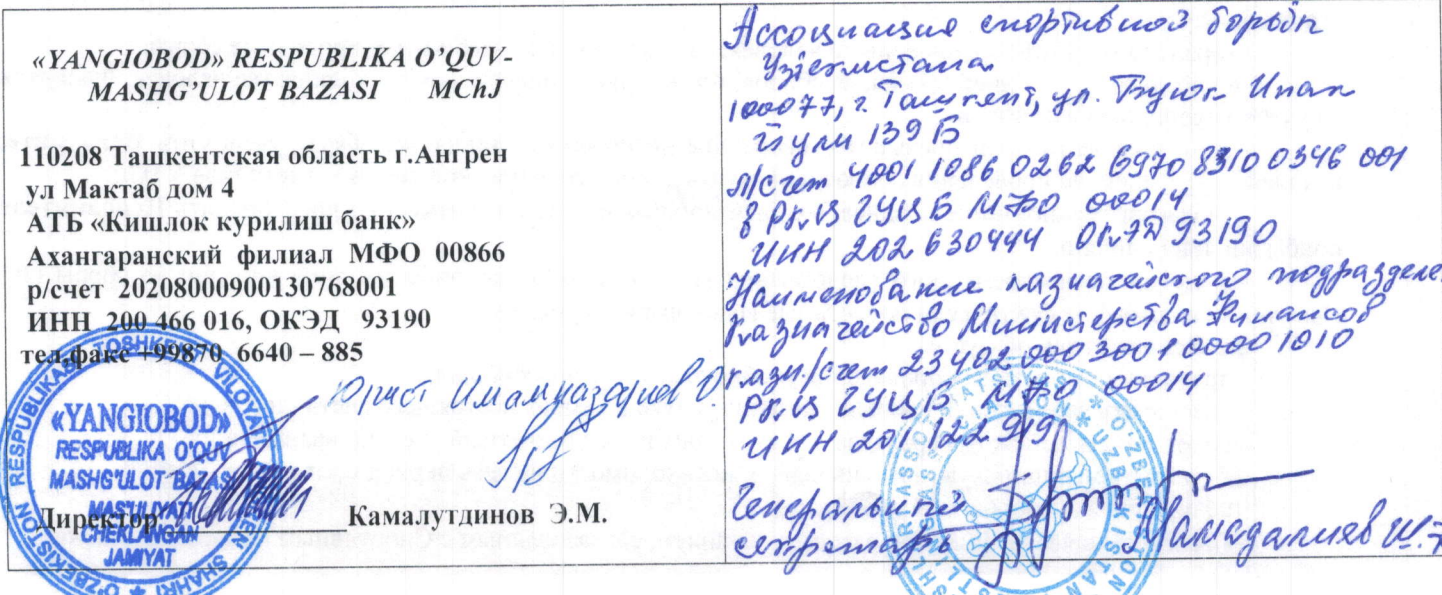 «YANGIOBOD» RESPUBLIKA O’QUV-
MASHG’ULOT BAZASI MChJ
110208 Ташкентская область г.Ангрен
ул Мактаб дом 4
АТБ «Кишлок курилиш банк»
Ахангаранский филиал МФО 00866
р/счет 20208000900130768001
ИНН 200 466 016, ОКЭД 93190
тел,факс +99870 6640 – 885
Юрист Имамназаров О.
«YANGIOBOD»
RESPUBLIKA O'QUV
MASHG'ULOT BAZASI
MAS'ULIYATI
CHEKLANGAN
JAMIYAT
Директор Камалутдинов Э.М.
Ассоциация спортивной борьбы
Узбекистана
100077, г. Ташкент, ул. Буюк Ипак
йули 139 Б
л/счет 4001 1086 0262 6970 8310 0346 001
в РКЦ ГУЦБ МФО 00014
ИНН 202 630444 ОКЭД 93190
Наименование казначейского подразделе.
Казначейство Министерства Финансов
казн./счет 23402 000 3001 00001010
РКЦ ГУЦБ МФО 00014
ИНН 201 122 919
Генеральный
секретарь